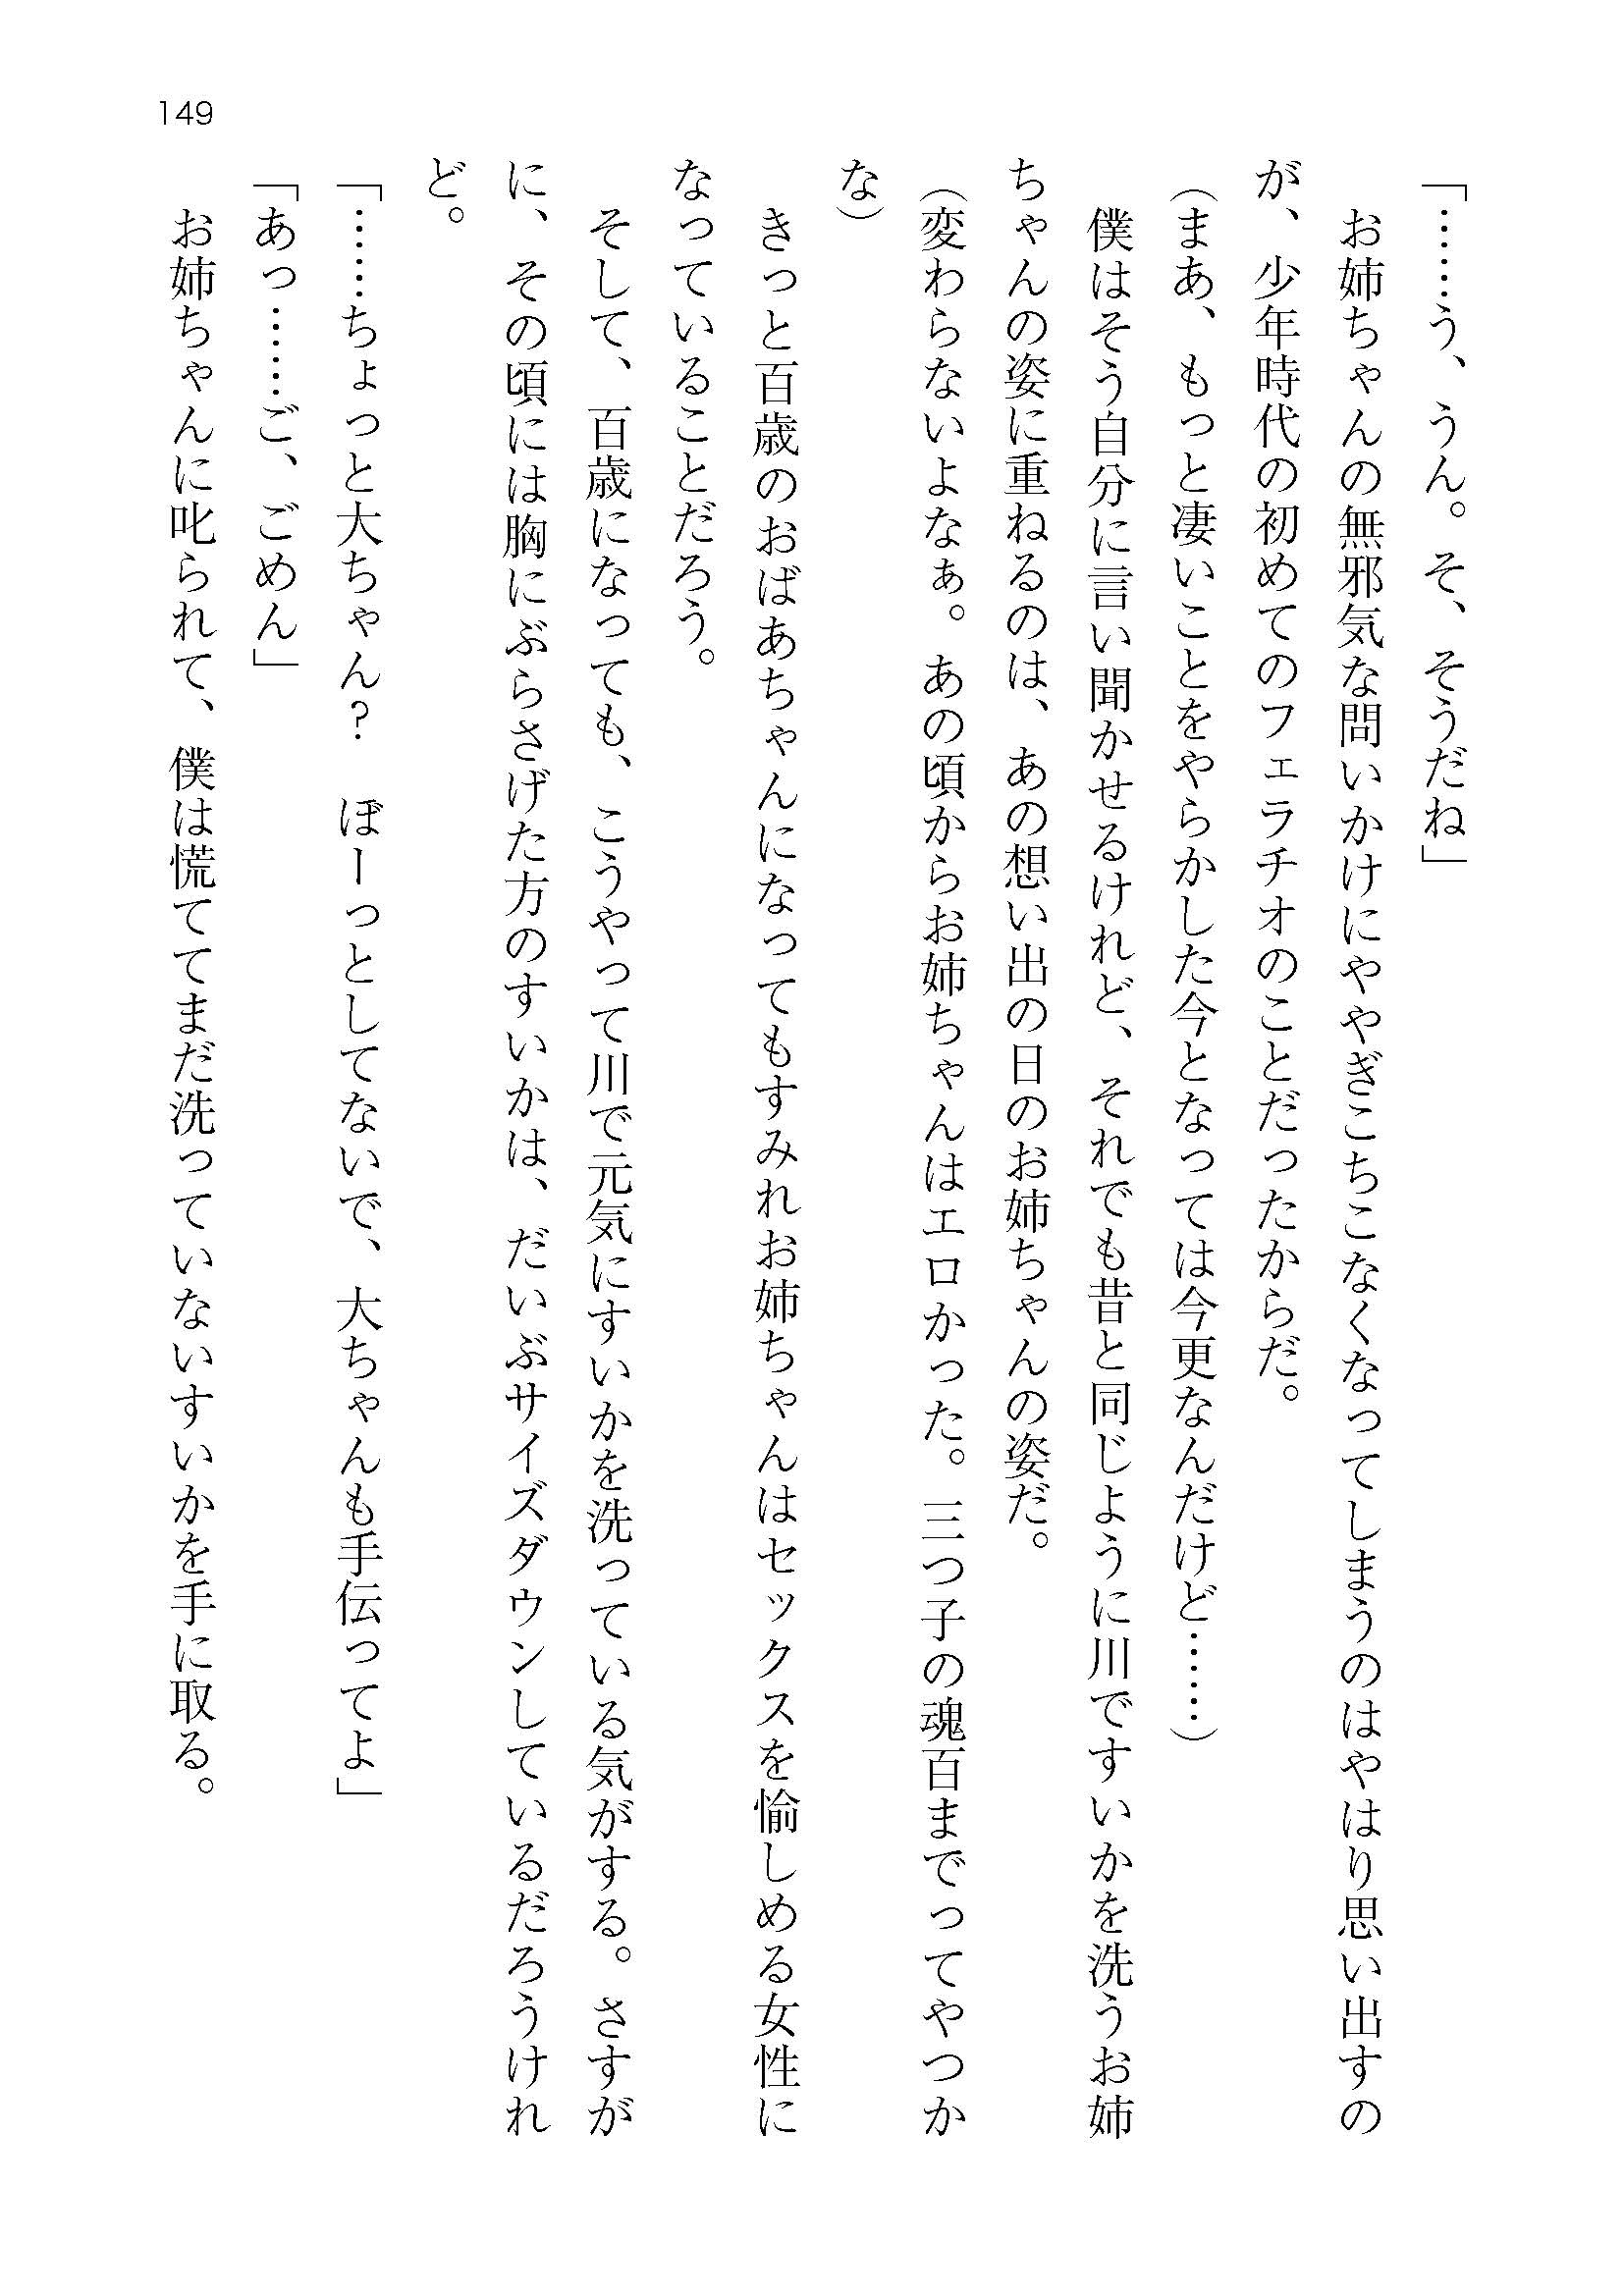 149
「……う、うん。そ、そうだね」
お姉ちゃんの無邪気な問いかけにややぎこちこなくなってしまうのはやはり思い出すの
が、少年時代の初めてのフェラチオのことだったからだ。
（まあ、もっと凄いことをやらかした今となっては今更なんだけど……）
僕はそう自分に言い聞かせるけれど、それでも昔と同じように川ですいかを洗うお姉
ちゃんの姿に重ねるのは、あの想い出の日のお姉ちゃんの姿だ。
（変わらないよなぁ。あの頃からお姉ちゃんはエロかった。三つ子の魂百までってやつか
な）
きっと百歳のおばあちゃんになってもすみれお姉ちゃんはセックスを愉しめる女性に
なっていることだろう。
そして、百歳になっても、こうやって川で元気にすいかを洗っている気がする。さすが
に、その頃には胸にぶらさげた方のすいかは、だいぶサイズダウンしているだろうけれ
ど。
「……ちょっと大ちゃん？　ぼーっとしてないで、大ちゃんも手伝ってよ」
「あっ……ご、ごめん」
お姉ちゃんに叱られて、僕は慌ててまだ洗っていないすいかを手に取る。